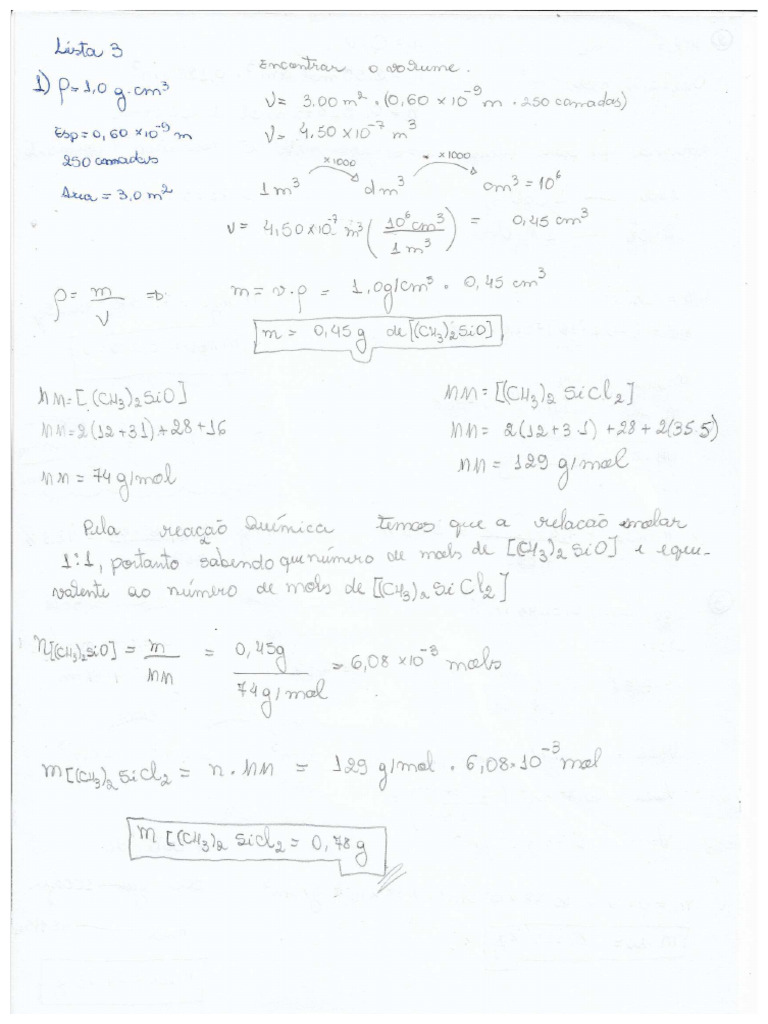 Lista 3
1) ρ=1,0 g.cm³
Esp=0,60 x10⁻⁹ m
250 camadas
Area = 3,0 m²
Encontrar o volume.
V= 3,00 m² . (0,60 x10⁻⁹ m . 250 camadas)
V= 4,50 x10⁻⁷ m³
x1000 x1000
1 m³ dm³ cm³ = 10⁶
V= 4,50 x10⁻⁷ m³ (10⁶cm³ / 1 m³) = 0,45 cm³
ρ = m / V ⇒ m = v.ρ = 1,0g/cm³ . 0,45 cm³
m = 0,45 g de [(CH₃)₂SiO]
MM=[(CH₃)₂SiO]
MM=2(12+3 1)+28+16
MM = 74 g/mol
MM=[(CH₃)₂ SiCl₂]
MM= 2(12+3.1)+28+2(35.5)
MM = 129 g/mol
Pela reação Química temos que a relacão molar
1:1, portanto sabendo que número de mols de [(CH₃)₂SiO] e equi-
valente ao número de mols de [(CH₃)₂SiCl₂]
n[(CH₃)₂SiO] = m / MM = 0,45g / 74g/mol = 6,08 x10⁻³ mols
m[(CH₃)₂SiCl₂ = n.MM = 129 g/mol . 6,08.10⁻³ mol
m [(CH₃)₂ SiCl₂ = 0,78 g